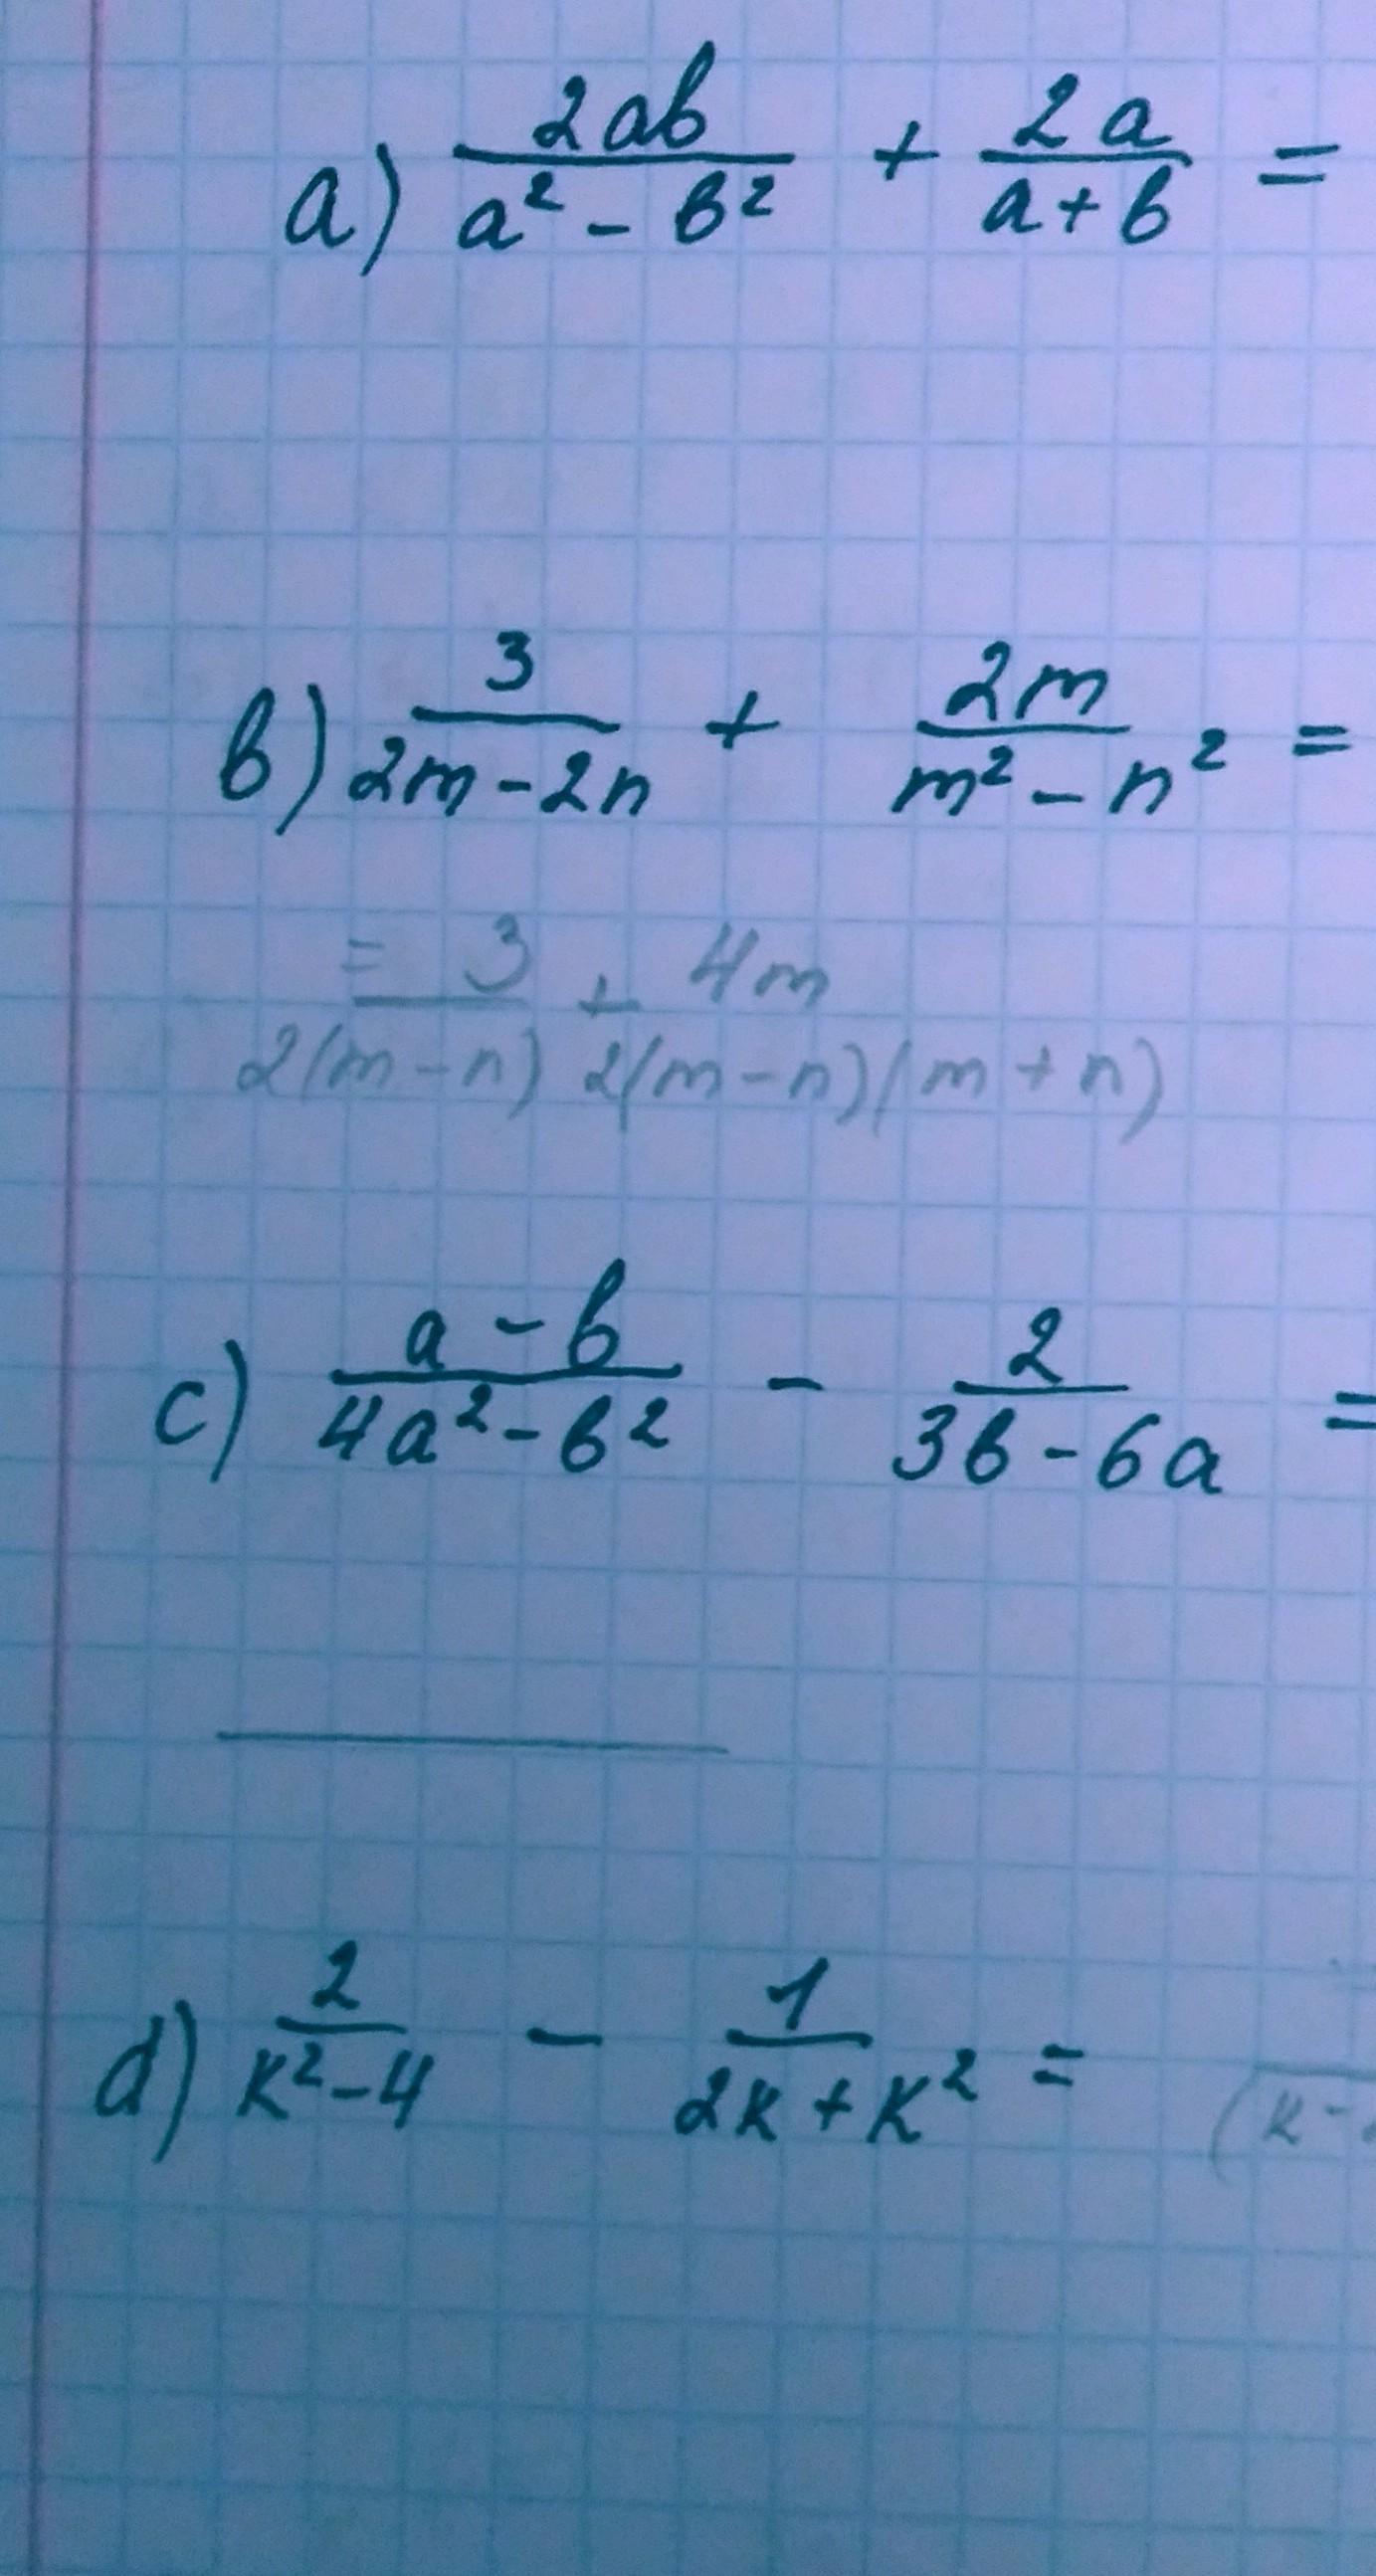 a) 2ab/(a² - b²) + 2a/(a + b) =
b) 3/(2m - 2n) + 2m/(m² - n²) =
= 3/(2(m - n)) + 4m/(2(m - n)(m + n))
c) (a - b)/(4a² - b²) - 2/(3b - 6a) =
d) 2/(k² - 4) - 1/(2k + k²) = (k -